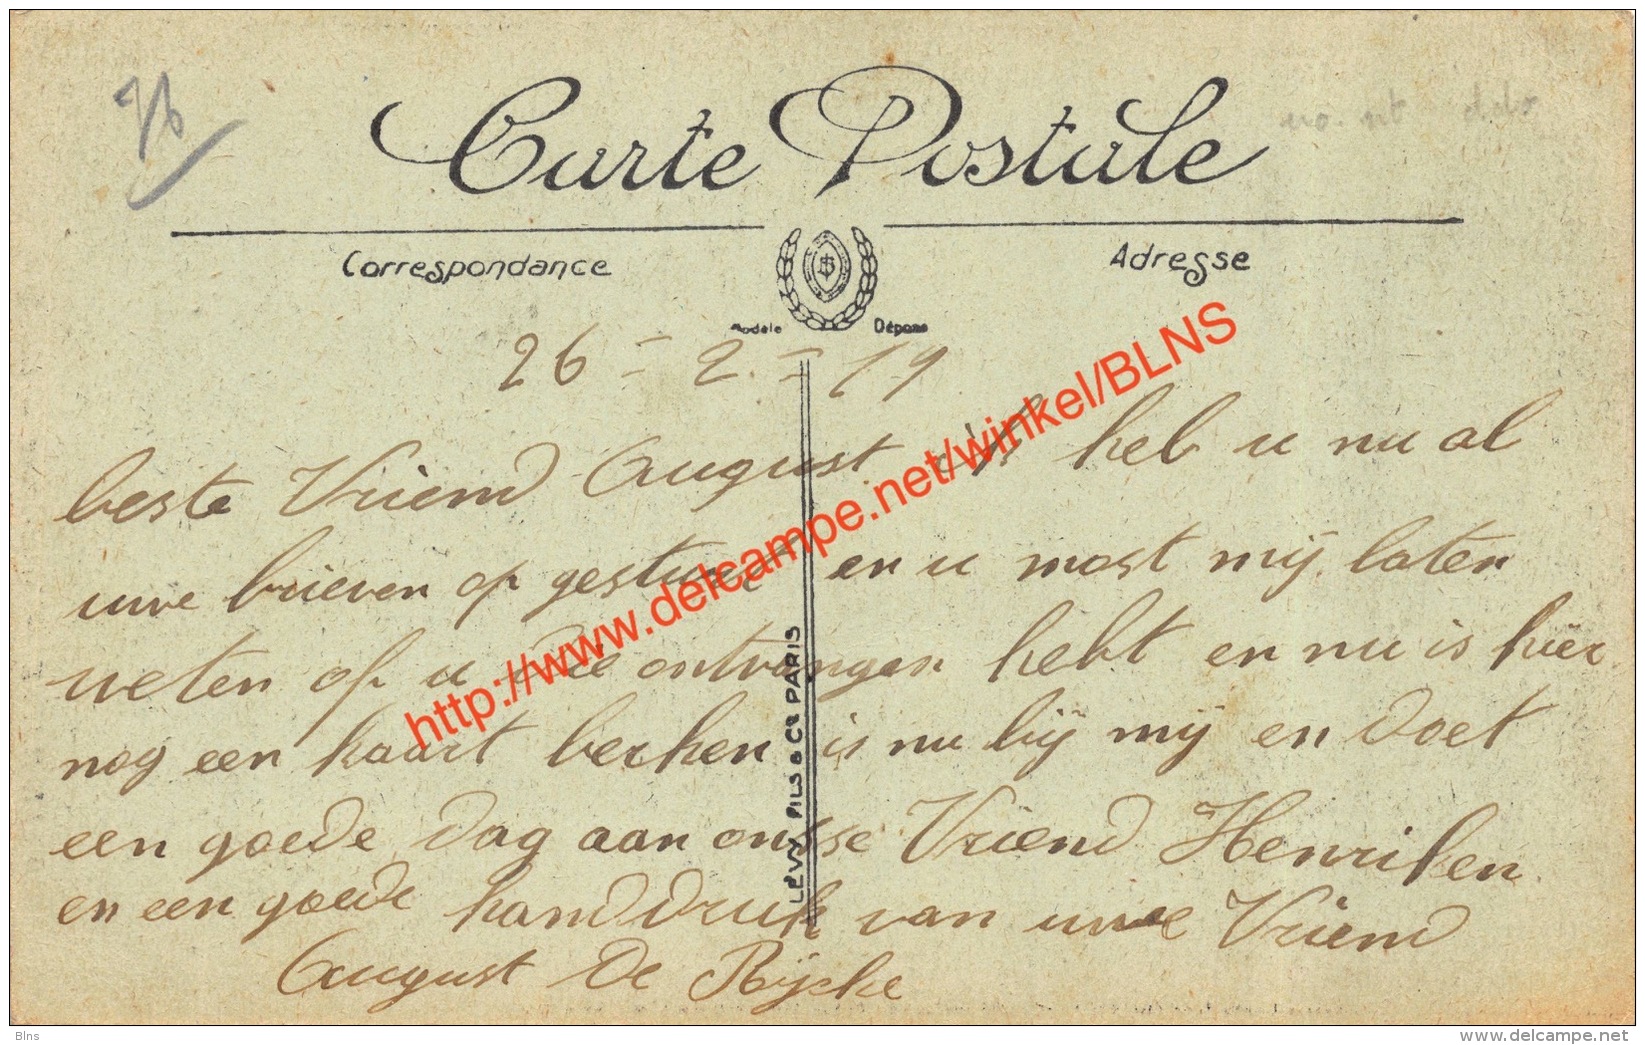 76
Carte Postale
Correspondance
Adresse
Modèle Déposé
26 - 2 - 19
beste Vriend August ik heb u nu al
uwe brieven op gestuurt en u most mij laten
weten of u die ontvangen hebt en nu is hier
nog een kaart berken is nu bij mij en doet
een goede dag aan onsse Vriend Henriken
en een goede handdruk van uwe Vriend
August De Rijcke
LÉVY FILS & Cie PARIS
http://www.delcampe.net/winkel/BLNS
Blns
www.delcampe.net